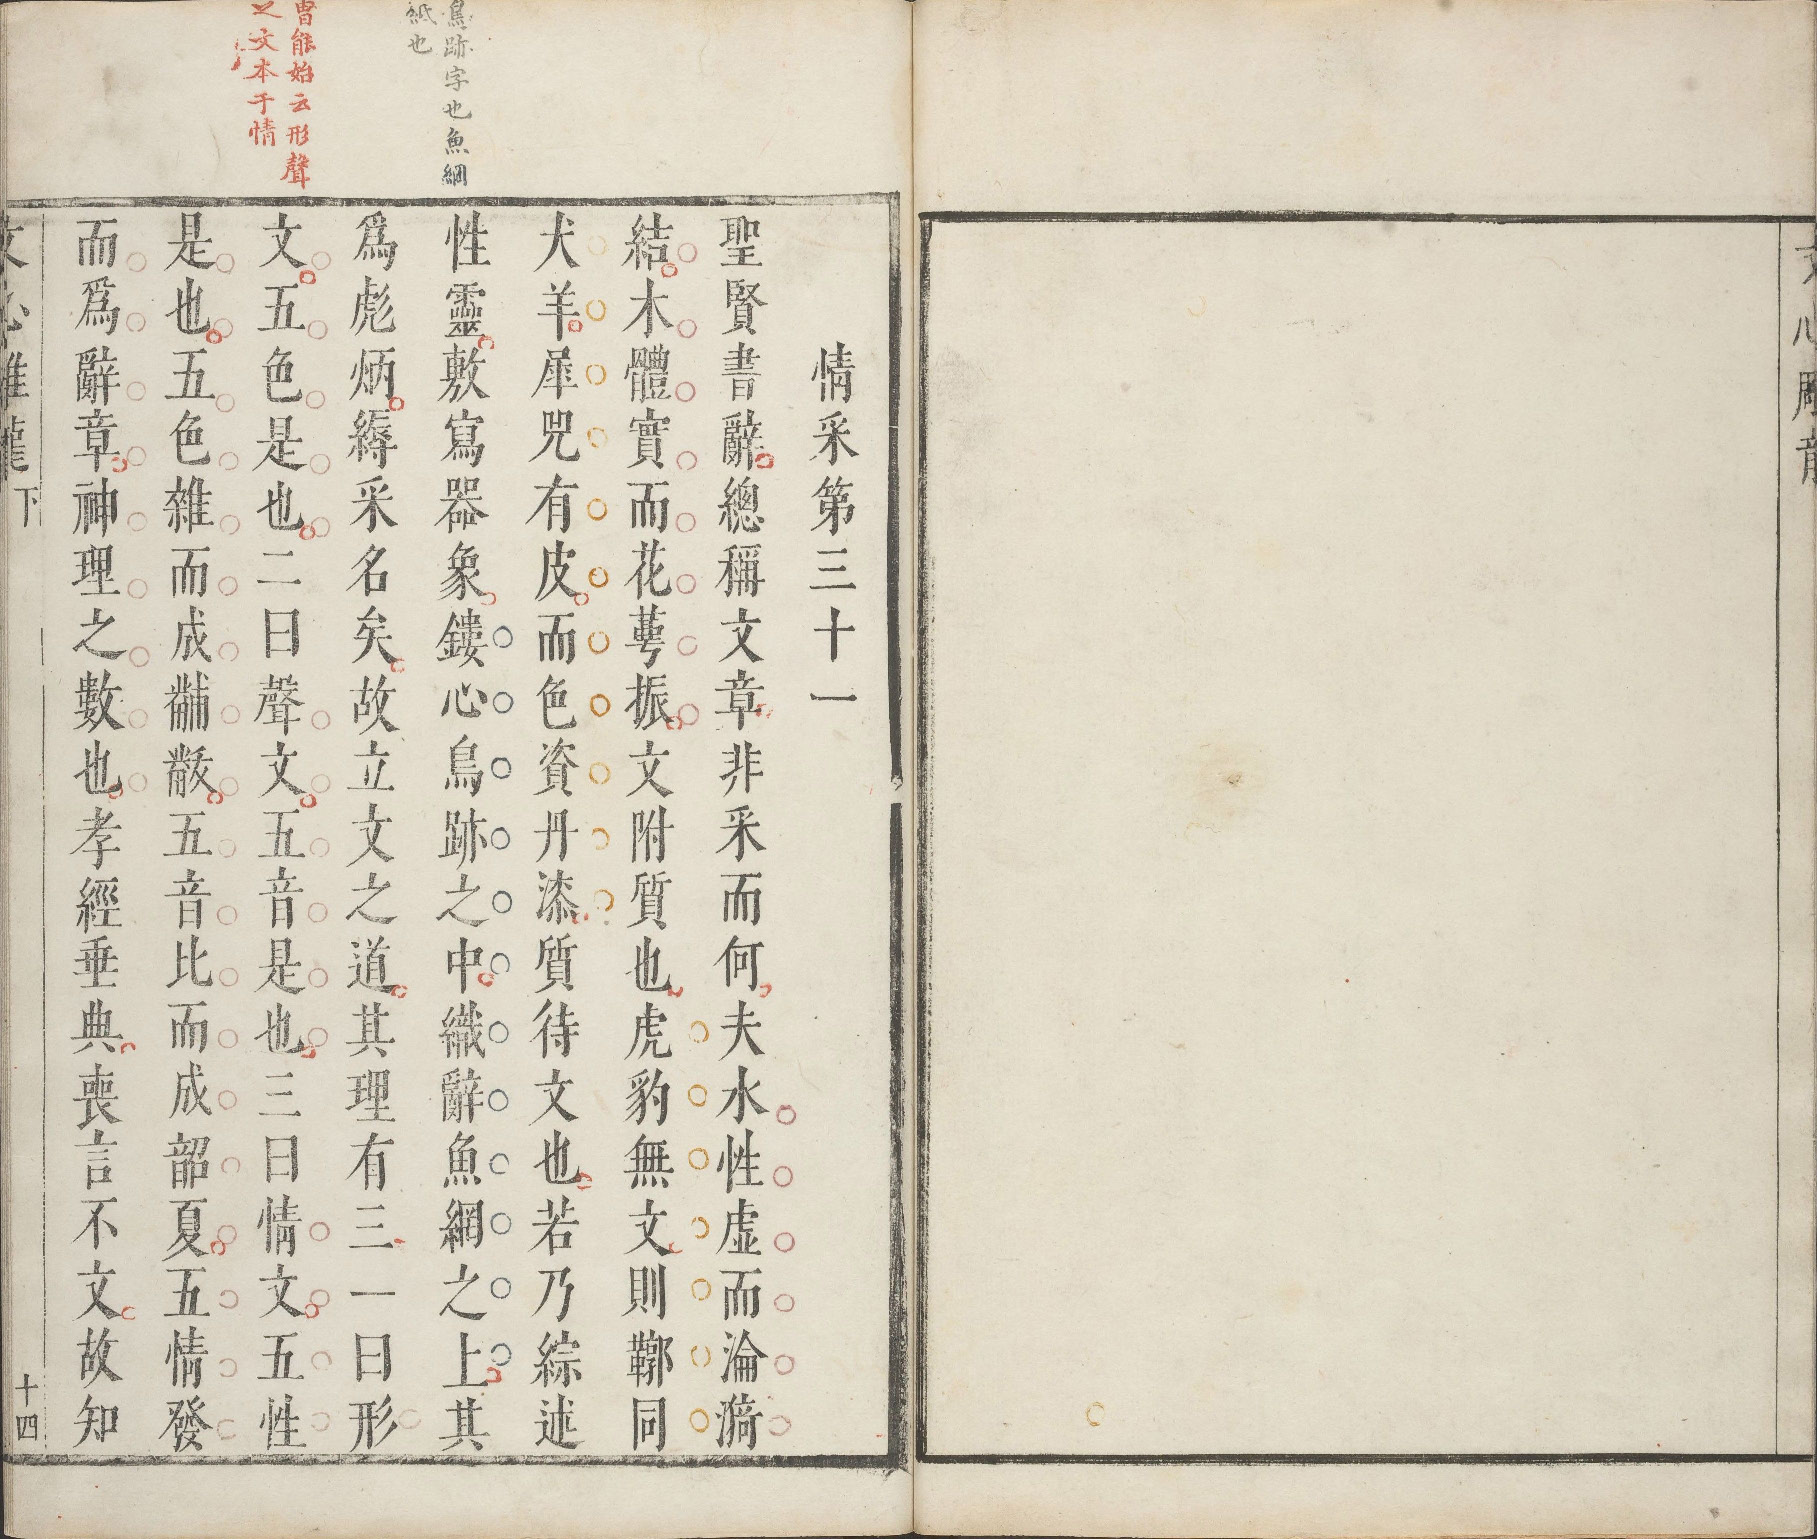 文心雕龍
情采第三十一
聖賢書辭總稱文章非采而何夫水性虛而淪漪
結木體實而花萼振文附質也虎豹無文則鞹同
犬羊犀兕有皮而色資丹漆質待文也若乃綜述
性靈敷寫器象鏤心鳥跡之中織辭魚網之上其
爲彪炳縟采名矣故立文之道其理有三一曰形
文五色是也二曰聲文五音是也三曰情文五性
是也五色雜而成黼黻五音比而成韶夏五情發
而爲辭章神理之數也孝經垂典喪言不文故知
鳥跡字也魚網
紙也
曹能始云形聲
之文本于情
文心雕龍下
十四